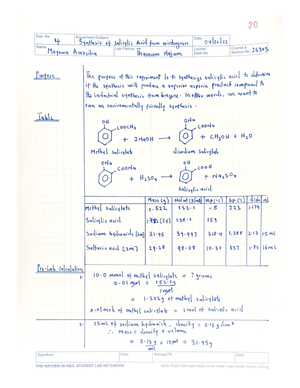 20
Exp. No. 4
Department/Subject Synthesis of salicylic Acid from wintergreen
Date 04/20/22
Name
Lab Partner
Locker/Desk No.
Course & Section No.
Purpose
The purpose of this experiment is to synthesize salicylic acid to determine
if the synthesis will produce a superior aspirin product compared to
the industrial synthesis from benzene. In other words, we want to
run an environmentally friendly synthesis.
Table
OH
COOCH₃
+ 2NaOH →
ONa
COONa
+ CH₃OH + H₂O
Methyl salicylate
disodium salicylate
ONa
COONa
+ H₂SO₄ →
OH
COOH
+ Na₂SO₄
Salicylic acid
Mass (g)
mp (°C)
bp (°C)
Methyl salicylate 1.522 152.1 -8 223 1.174
Salicylic acid 138.1 159
Sodium hydroxide (6M) 31.95 39.997 318.4 1,388 2.13 15ml
Sulfuric acid 29.28 98.08 10.31 337
Pre-Lab Calculation
1. 10.0 mmol of methyl salicylate = ? grams
1 mol
= 1.522g of methyl salicylate
0.01 mol of methyl salicylate = 1 mol of salicylic acid
2. 15ml of sodium hydroxide, density = 2.13 g/cm³
∴ Mass = density × volume
= 2.13g × 15ml = 31.95g
ml
Signature
Date
Witness/TA
Date
THE HAYDEN-McNEIL STUDENT LAB NOTEBOOK